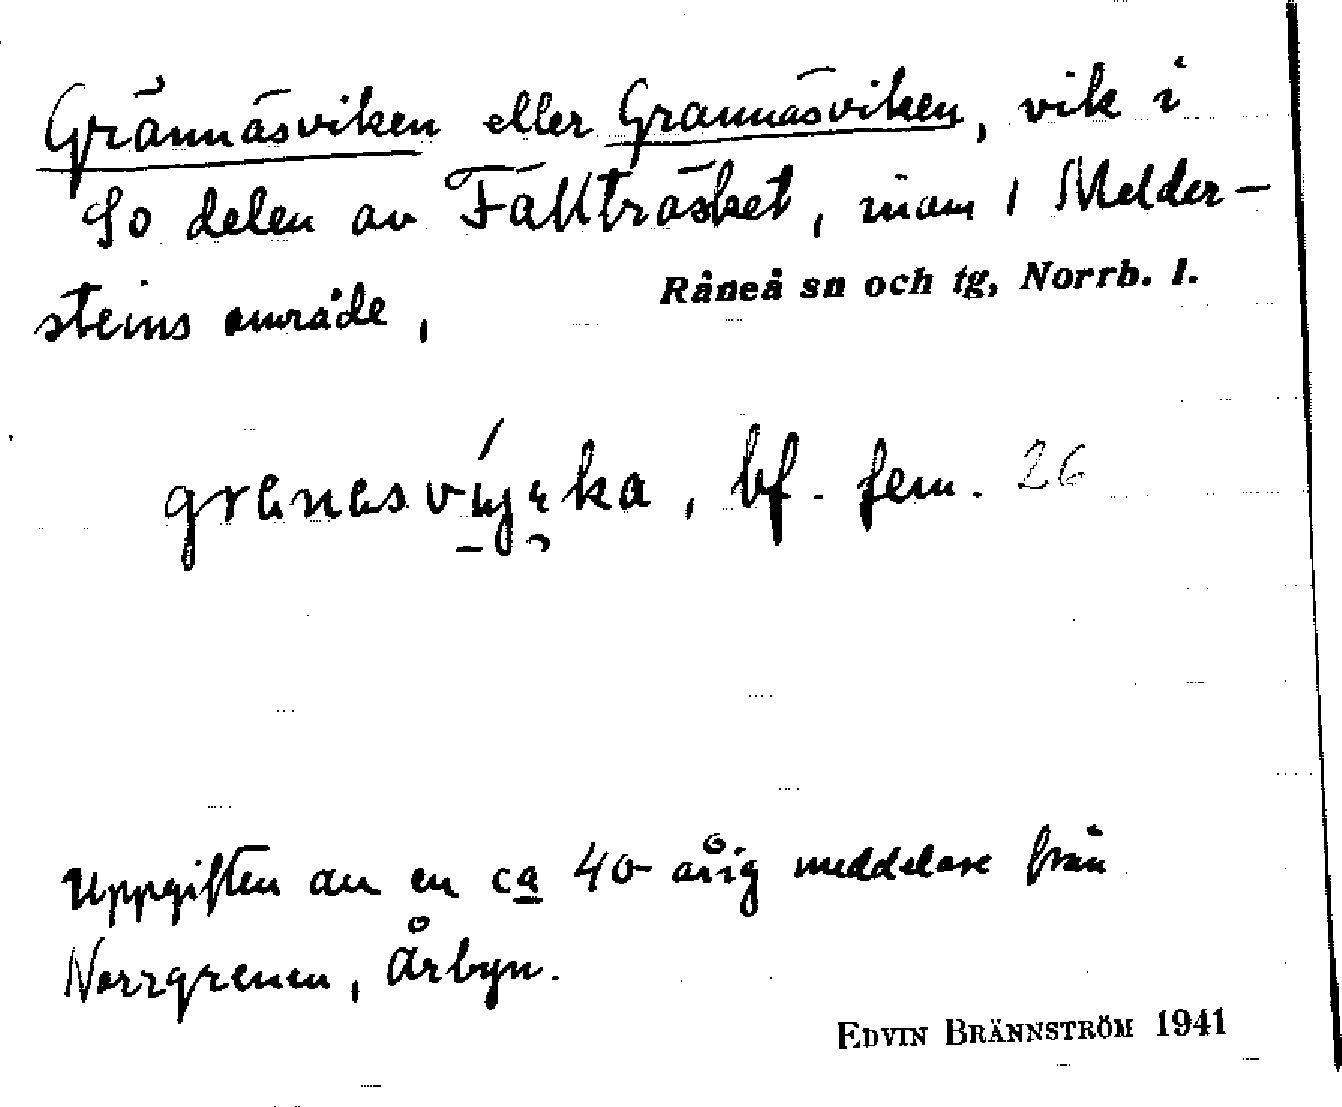 Grännäsviken eller Grannäsviken, vik i
So delen av Fällträsket, inom Melder-
steins område,
Råneå sn och tg, Norrb. l.
bf. fem. 26
Uppgiften av en ca 40-årig meddelare från
Norrgrenen, Årbyn.
EDVIN BRÄNNSTRÖM 1941